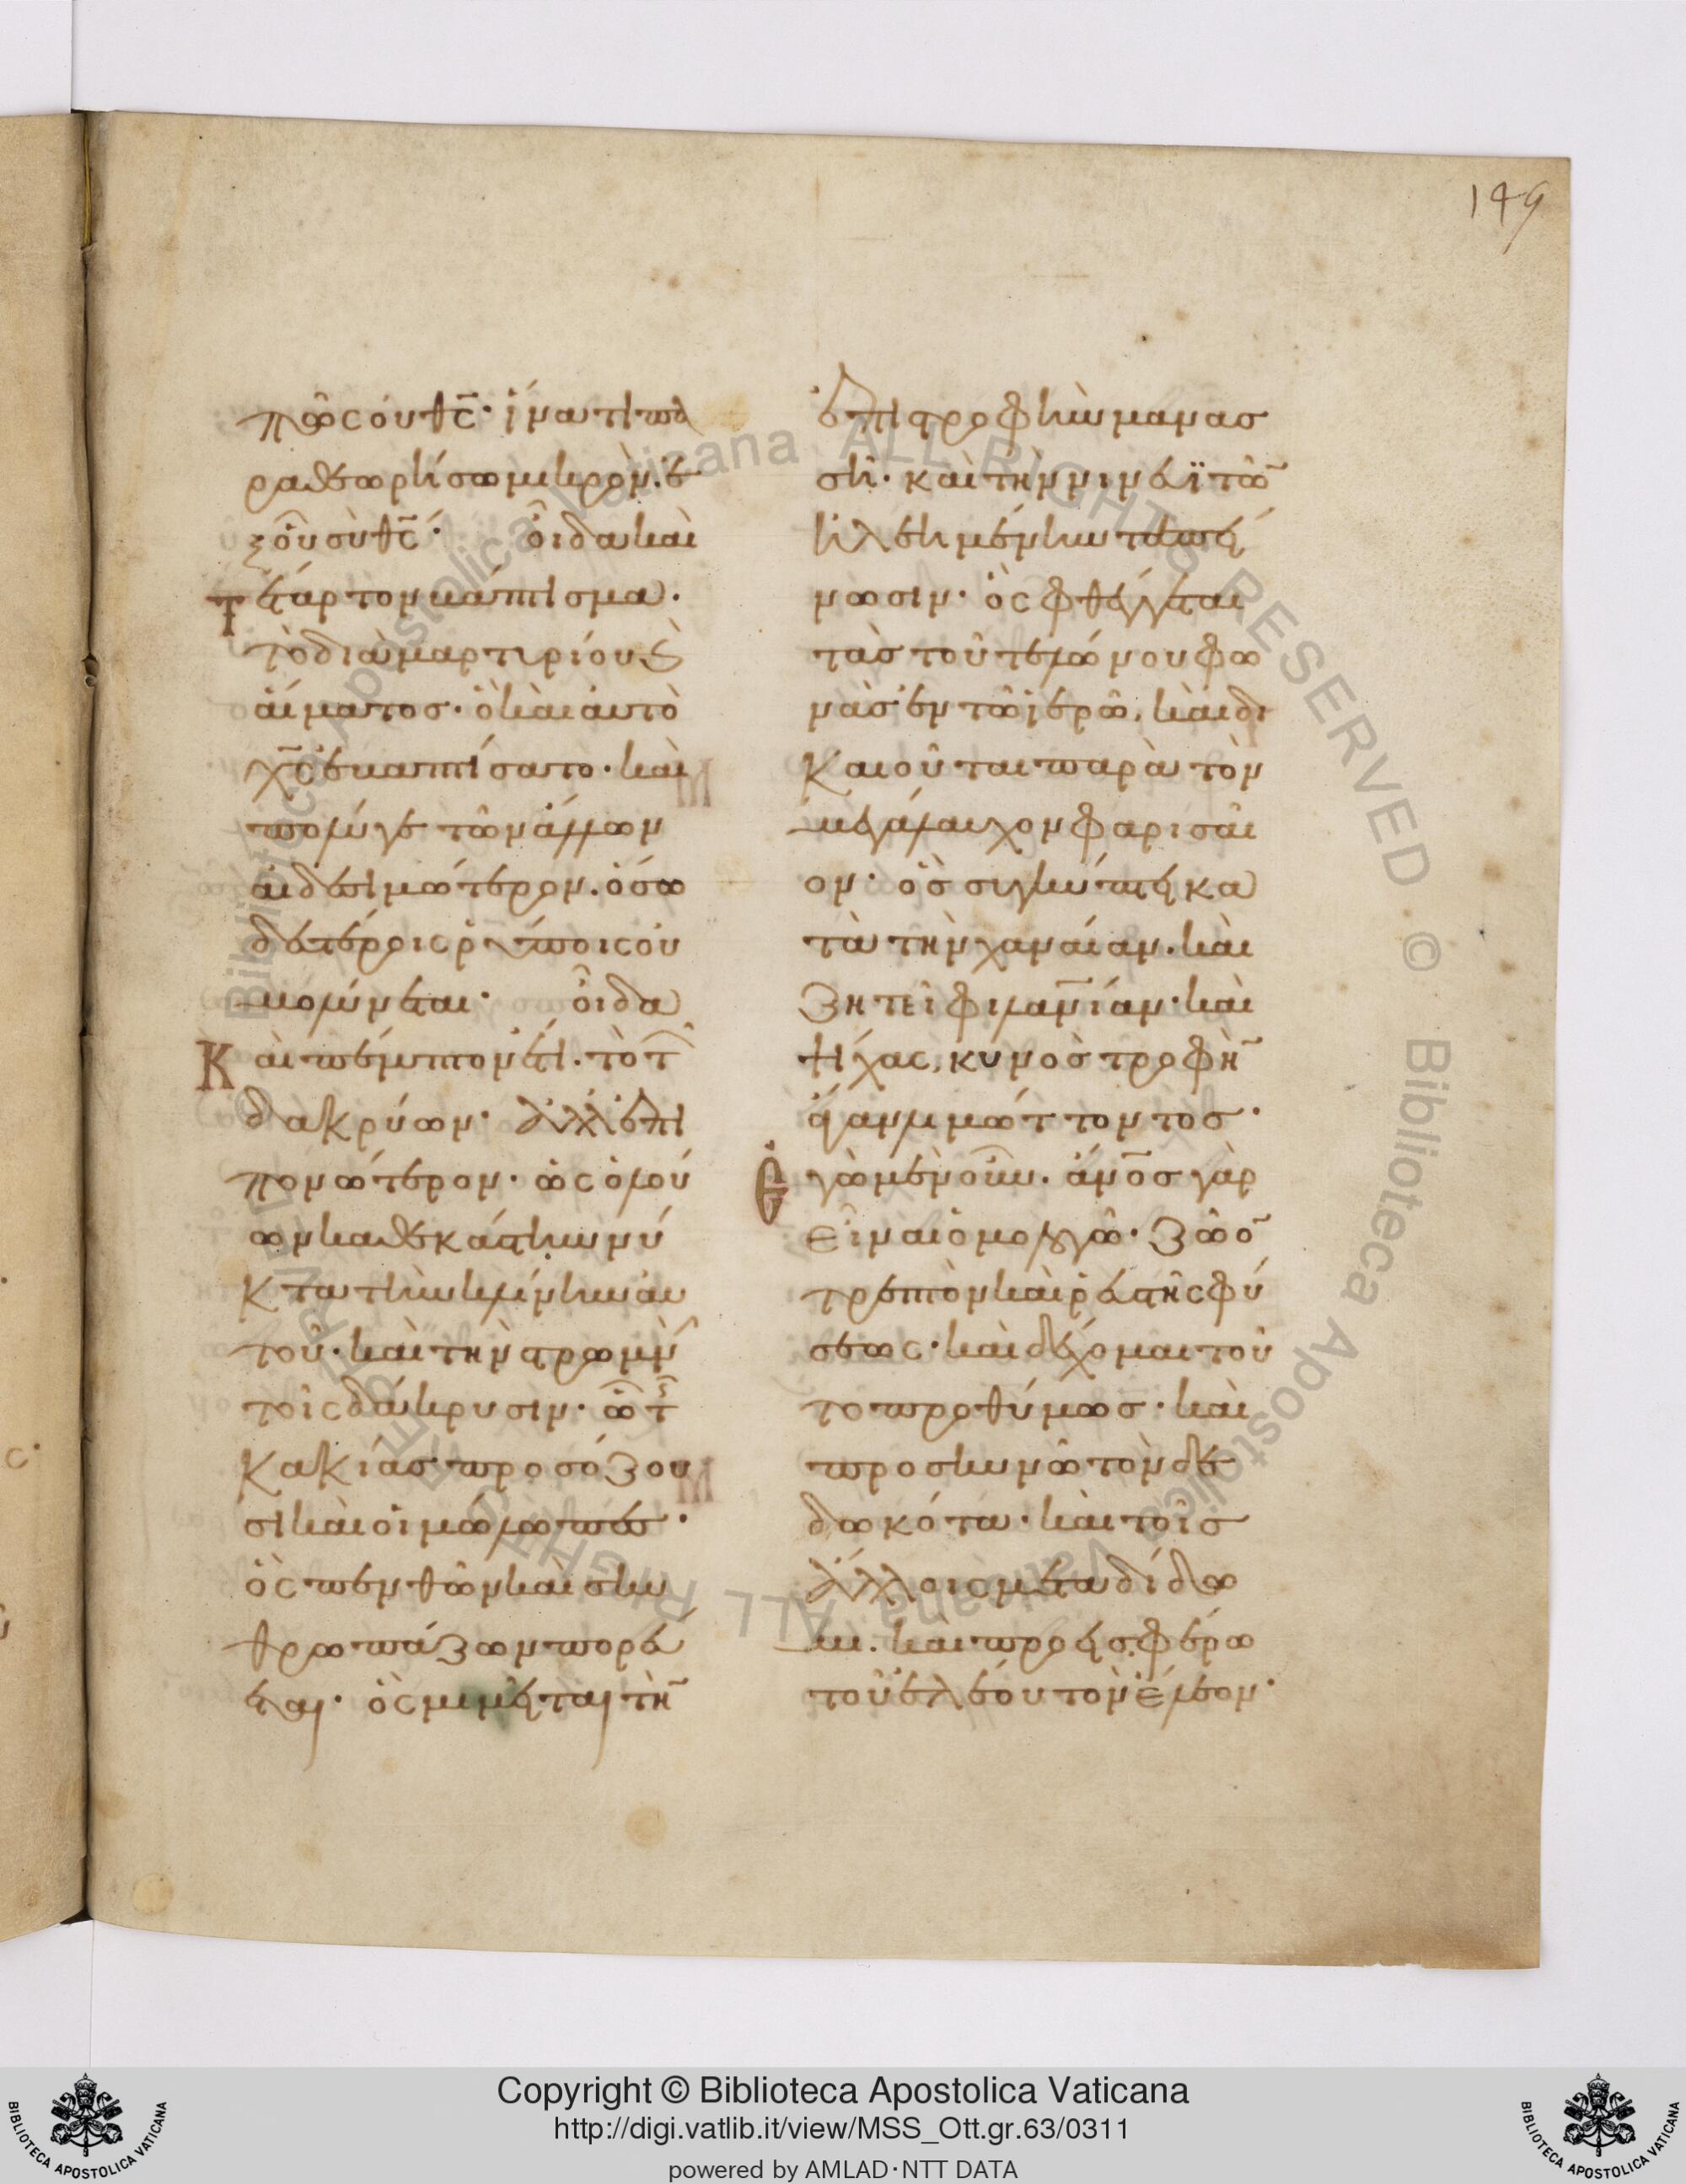 149
πῶς οὐ θς· ἵνα τι παρ
ραθεωρήσω μικρόν. ἐ
ξ οὗ σὺ θς· οἶδα καὶ
τέταρτον βάπτισμα.
τὸ διὰ μαρτυρίου καὶ
αἵματος. ὃ καὶ αὐτὸ
χς ἐβαπτίσατο. καὶ
πολύ γε τῶν ἄλλων
αἰδεσιμώτερον. ὅσω
δευτέροις ῥύποις οὐ
μολύνεται· οἶδα
καὶ πέμπτον ἔτι. τὸ τ
δακρύων· ἀλλ' ἐπι
πονώτερον. ὡς ὁ λού
ων καθ' ἑκάστην νύ
κτα τὴν κλίνην αυ
τοῦ. καὶ τὴν στρωμν
τοῖς δάκρυσιν· ὧ τ
κακίας προσόζου
σι καὶ οἱ μώλωπες.
ὃς πενθῶν καὶ σκυ
θρωπάζων πορεύ
εται· ὃς μιμεῖται τὴ
ἐπιστροφὴν μανασ
σῆ· καὶ τὴν νινευϊτῶ
ἠλεημένην ταπεί
νωσιν. ὃς φθέγγεται
τὰς τοῦ τελώνου φω
νὰς ἐν τῶ ἱερῶ, καὶ δι
καιοῦται παρὰ τὸν
μεγάλαυχον φαρισαῖ
ον. ὃς συγκύπτει κα
τὰ τὴν χαναίαν. καὶ
ζητεῖ φιλανίαν. καὶ
ψίχας, κυνὸς τροφὴ
λίαν λιμώττοντος.
Ἐγὼ μὲν οὖν. ἄνος γὰρ
εἶναι ὁμολογῶ. ζῶο
τρεπτὸν καὶ ῥευστῆς φύ
σεως. καὶ δέχομαι τοῦ
το προθύμως. καὶ
προσκυνῶ τὸν δε
δωκότα. καὶ τοῖς
ἄλλοις μεταδίδω
μι. καὶ προεισφέρω
τοῦ ἐλέου τὸν ἔλεον.
Copyright © Biblioteca Apostolica Vaticana
http://digi.vatlib.it/view/MSS_Ott.gr.63/0311
powered by AMLAD·NTT DATA
BIBLIOTECA APOSTOLICA VATICANA
BIBLIOTECA APOSTOLICA VATICANA
Biblioteca Apostolica Vaticana ALL RIGHTS RESERVED © Biblioteca Apostolica Vaticana ALL RIGHTS RESERVED ©